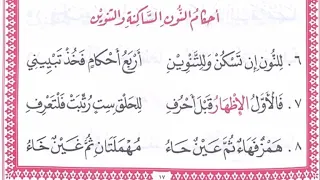 أحكام النون الساكنة والتنوين
٦. لِلنُّونِ إِن تَسْكُنْ وَلِلتَّنْوِينِ أَرْبَعُ أَحْكَامٍ فَخُذْ تَبْيِينِي
٧. فَالْأَوَّلُ الْإِظْهَارُ قَبْلَ أَحْرُفِ لِلْحَلْقِ سِتٌّ رُتِّبَتْ فَلْتَعْرِفِ
٨. هَمْزٌ فَهَاءٌ ثُمَّ عَيْنٌ حَاءُ مُهْمَلَتَانِ ثُمَّ غَيْنٌ خَاءُ
١٧